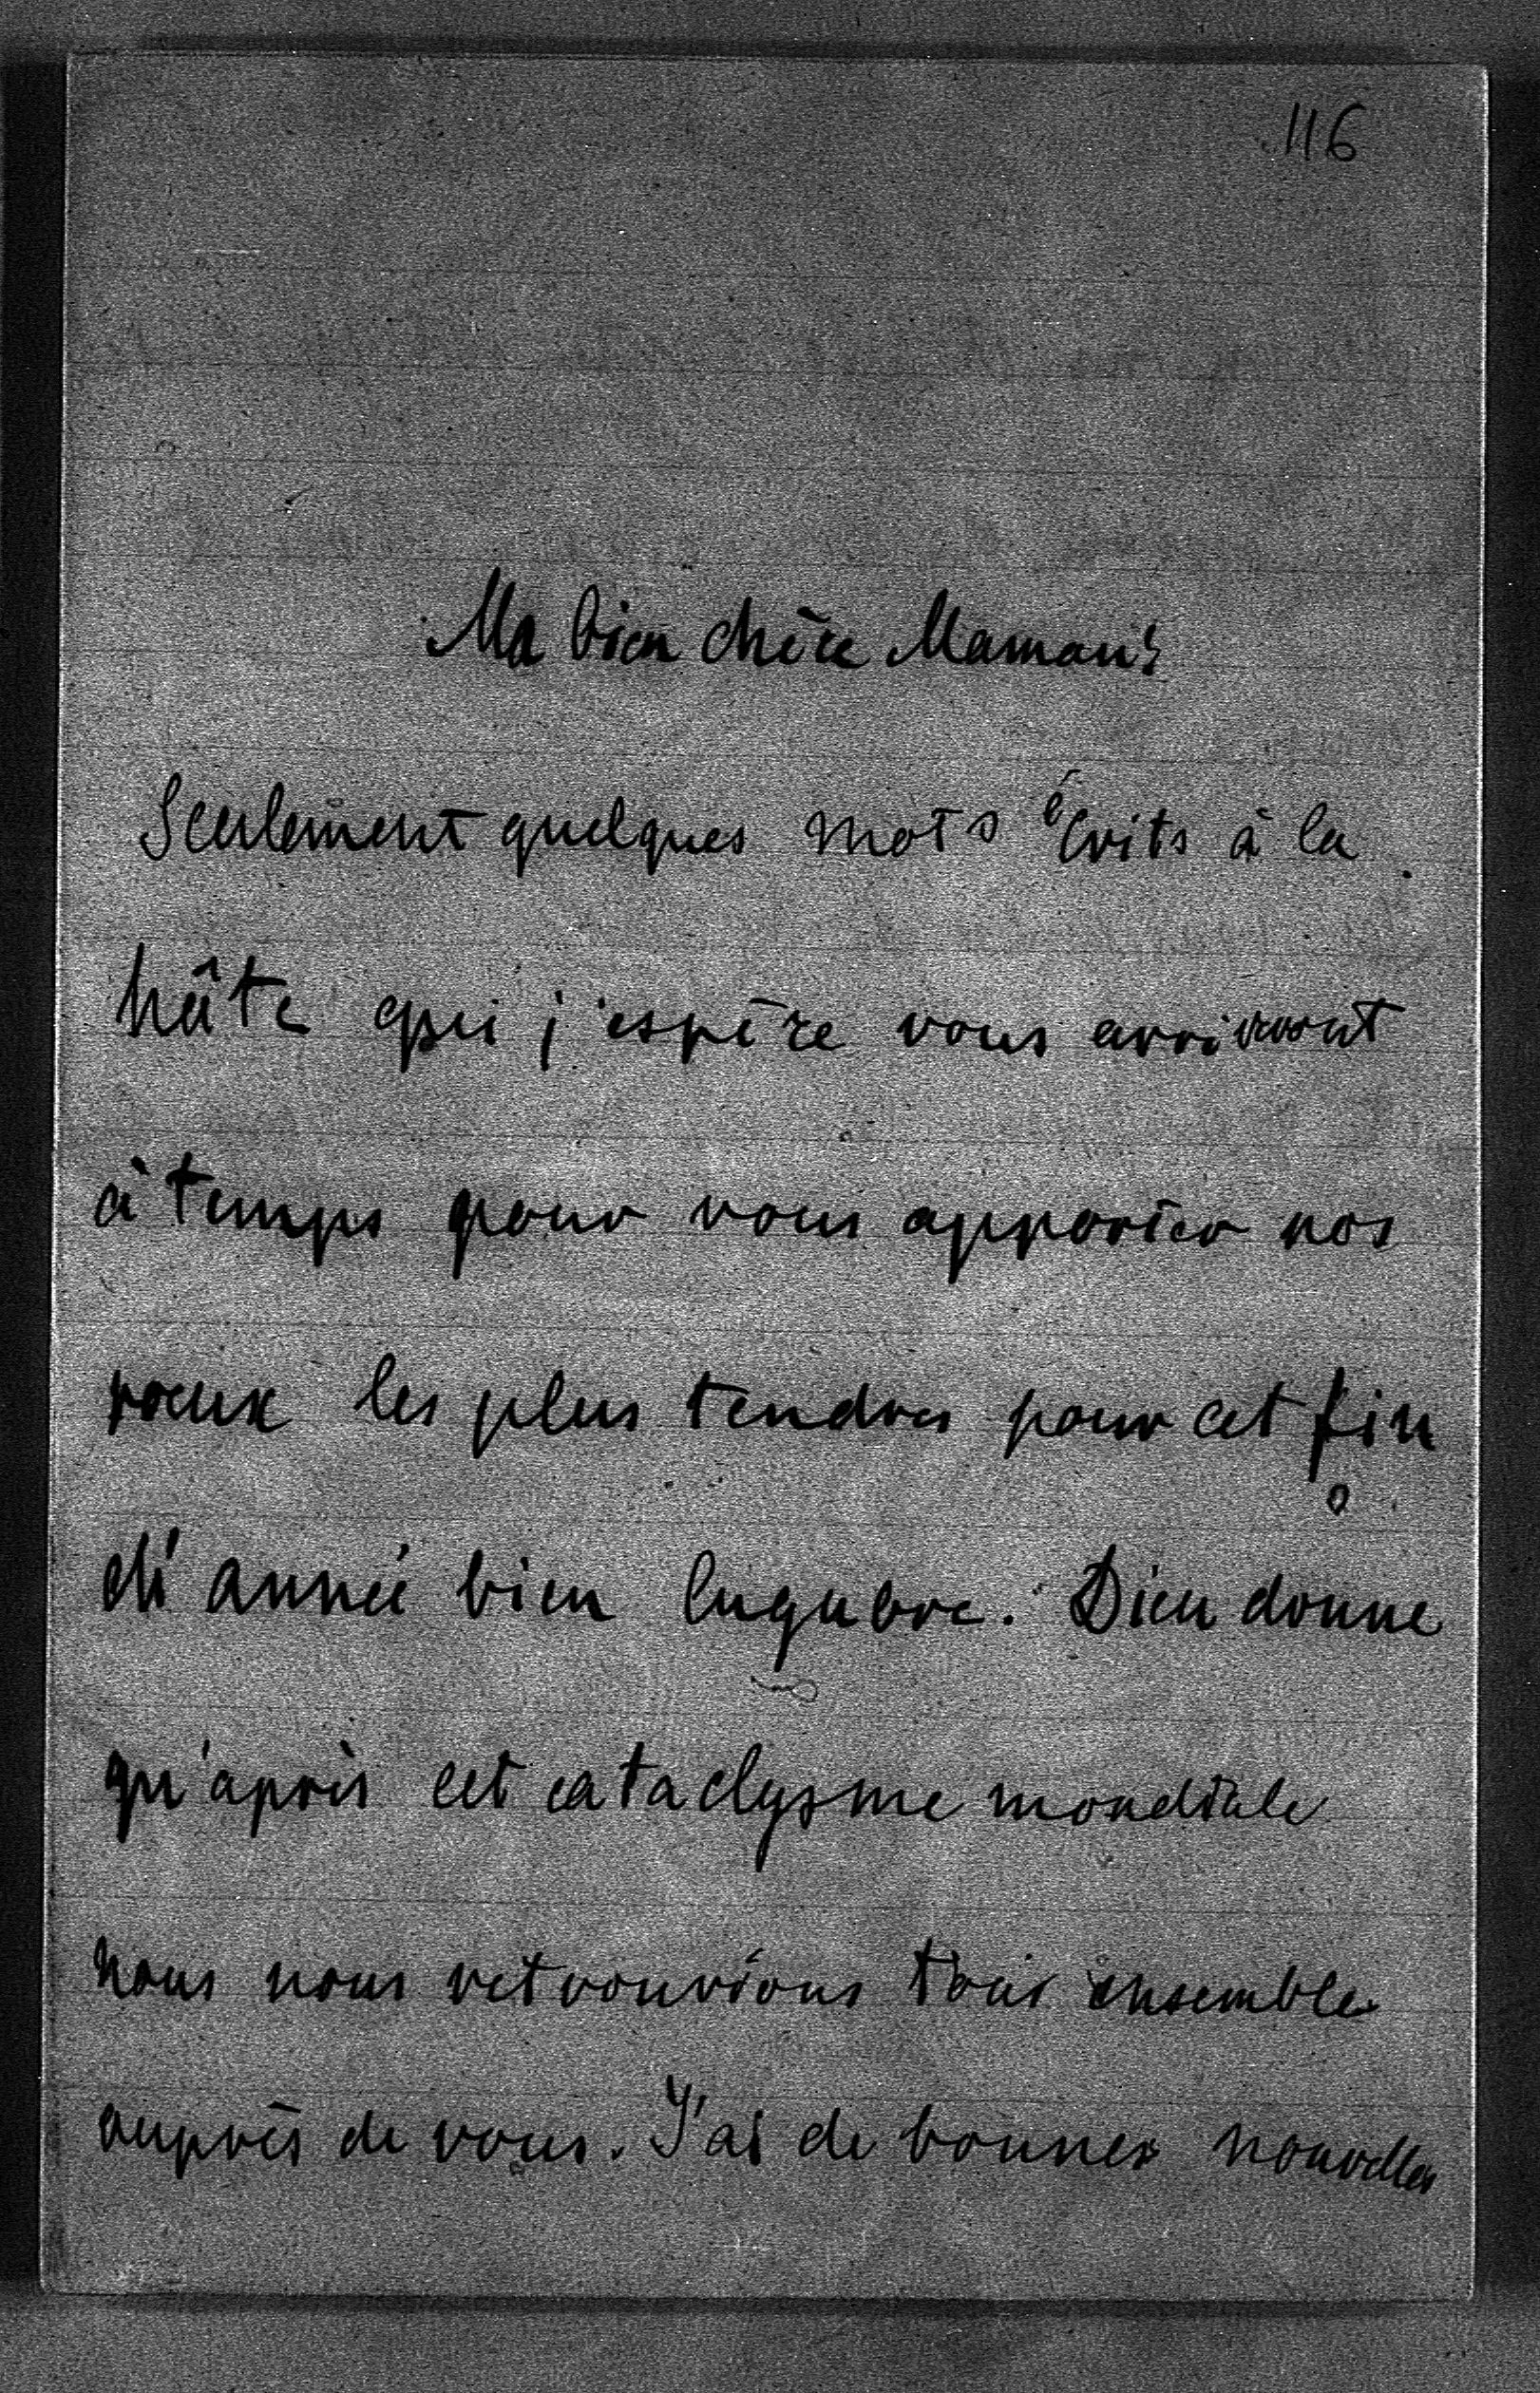 116
Ma bien chère Maman!
Seulement quelques mots écrits à la
hâte qui j'espère vous arriveront
à temps pour vous apporter nos
voeux les plus tendres pour cet fin
d'année bien lugubre. Dieu donne
qu'après cet cataclysme mondiale
nous nous retrouvions tous ensemble
auprès de vous. J'ai de bonnes nouvelles